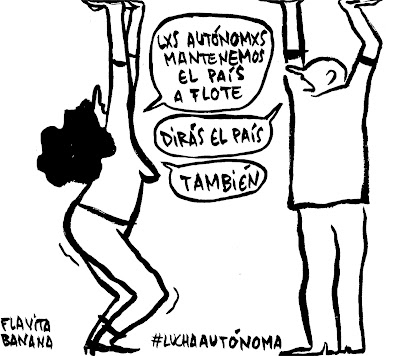 LXS AUTÓNOMXS
MANTENEMOS
EL PAÍS
A FLOTE
DIRÁS EL PAÍS
TAMBIÉN
FLAVITA
BANANA
#LUCHAAUTÓNOMA